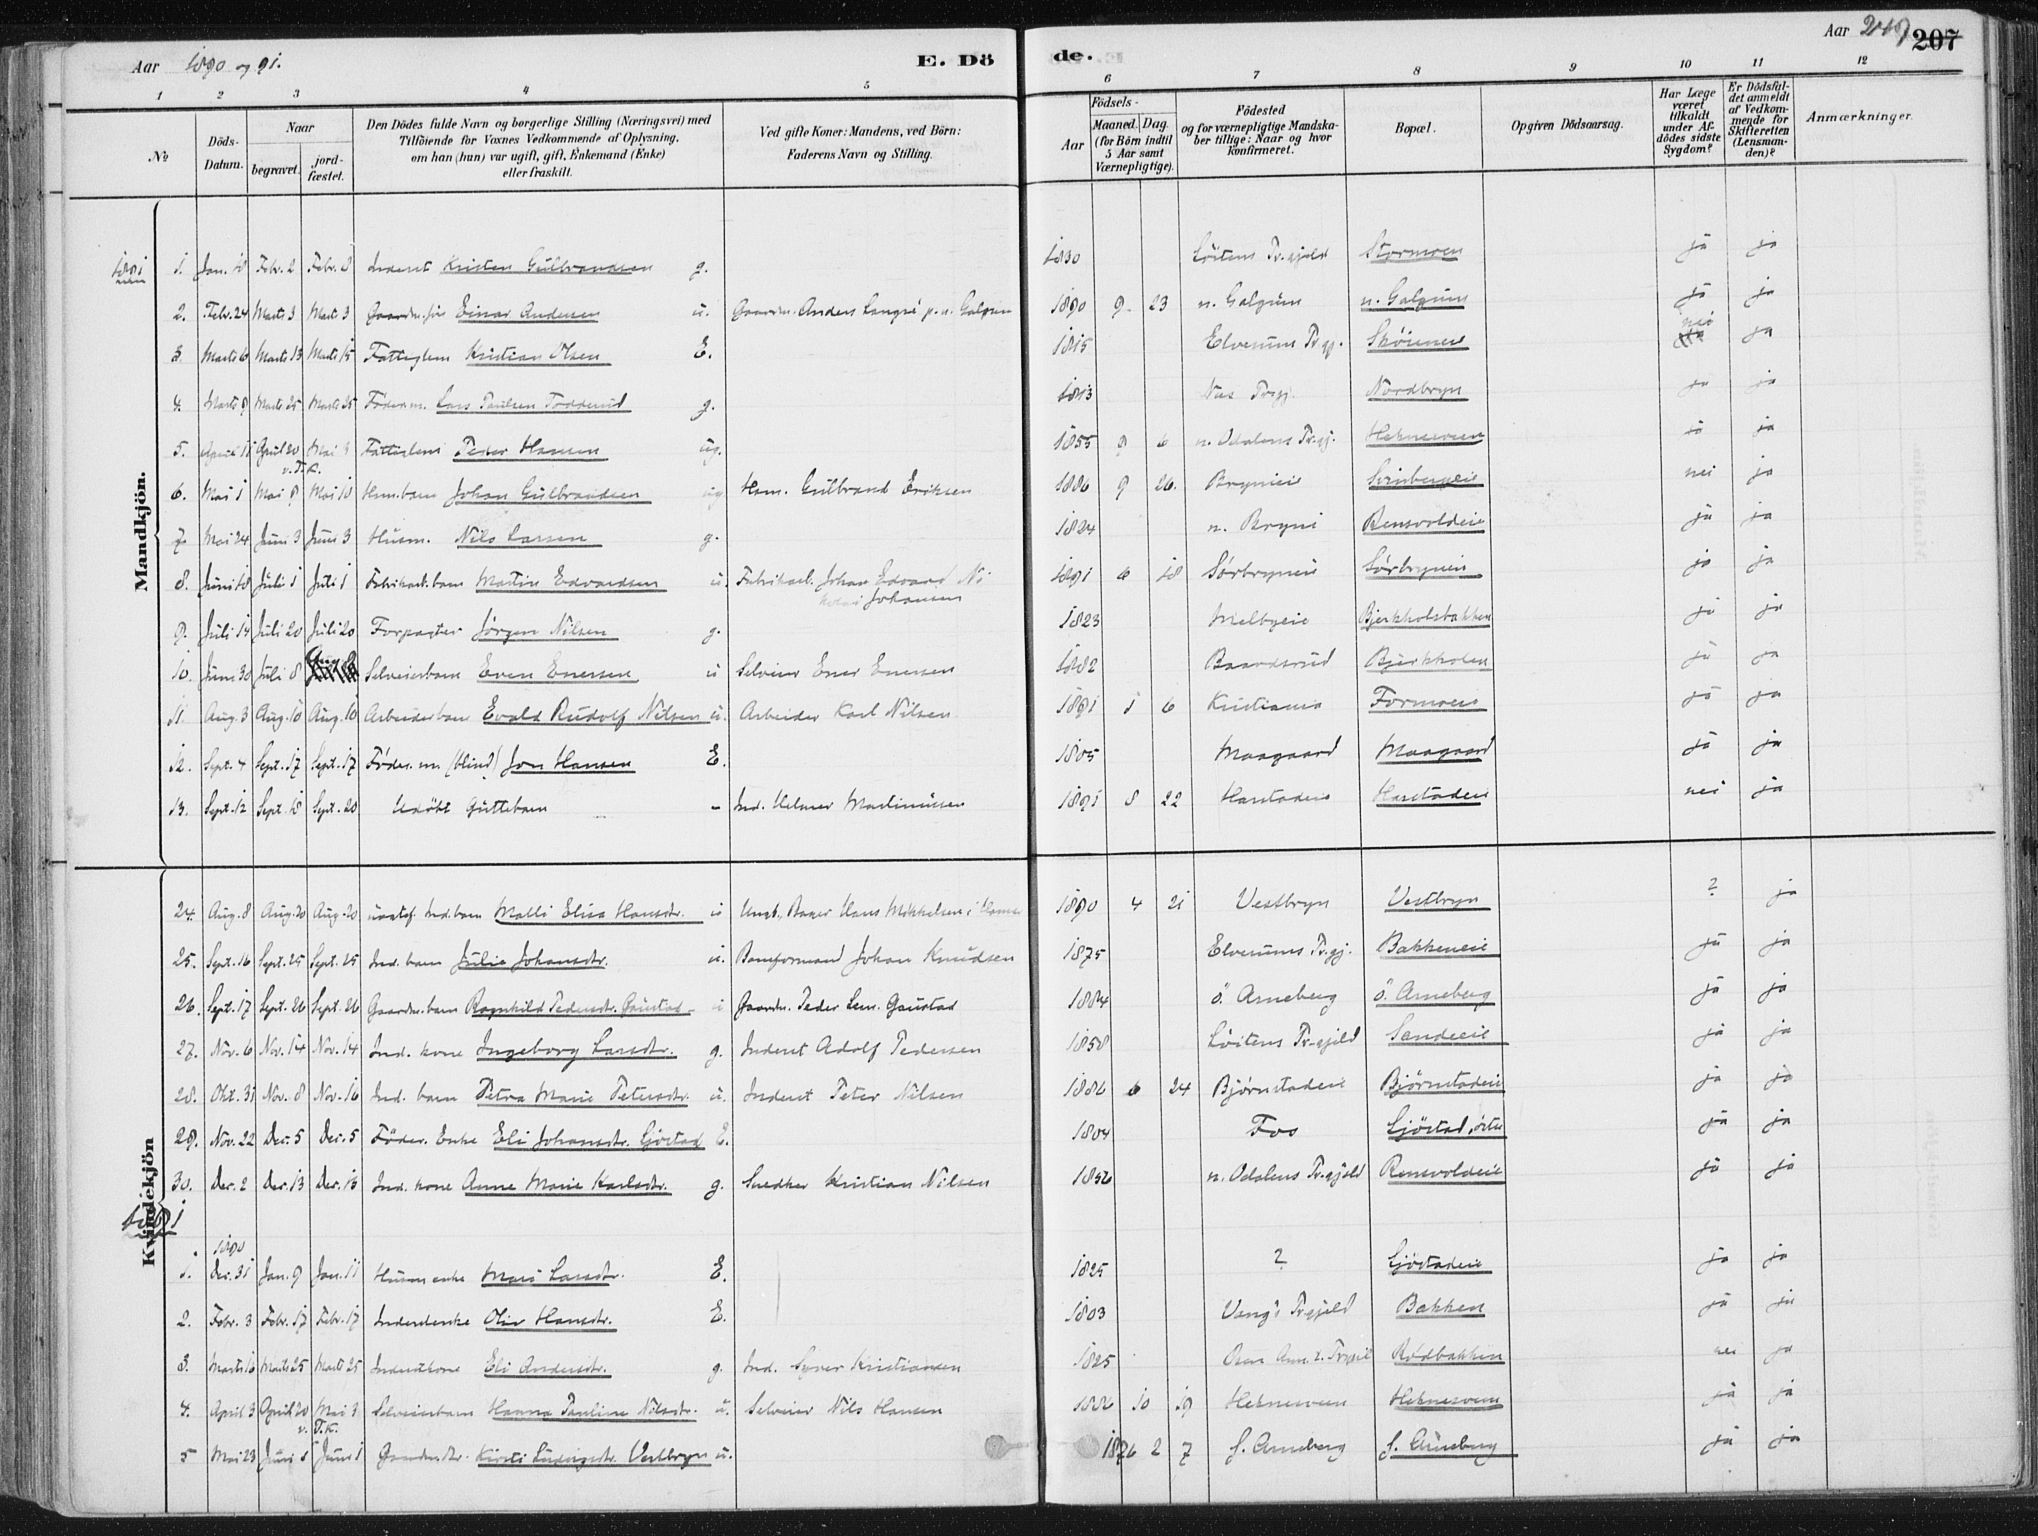 Aar 1890 og 91. E. Dö
de. Aar 207
1 2 3 4 5 6 7 8 9 10 11 12
№ Döds-Datum. Naar begravet. jordfæstet. Den Dödes fulde Navn og borgerlige Stilling (Næringsvei) med Tilföiende for Voxnes Vedkommende af Oplysning, om han (hun) var ugift, gift, Enkemand (Enke) eller fraskilt. Ved gifte Koner: Mandens, ved Börn: Faderens Navn og Stilling. Födsels- Aar Maaned. Dag. (for Börn indtil 5 Aar samt Værnepligtige). Födested og for værnepligtige Mandskaber tillige: Naar og hvor konfirmeret. Bopæl. Opgiven Dödsaarsag. Har Læge været tilkaldt under Afdödes sidste Sygdom? Er Dödsfaldet anmeldt af Vedkommende for Skifteretten (Lensmanden)? Anmærkninger.
Mandkjön.
1891
1. Jan. 18 Febr. 2 Febr. 8 Inderst Kristen Gulbrandsen g. 1830 Löitens Pr.gjeld Stormoen ja ja
2. Febr. 24 Marts 3 Marts 3 Gaardm. søn Einar Andersen u. Gaardm. Anders n. Galgum 1890 9 23 n. Galgum n. Galgum ja ja
3. Marts 6 Marts 13 Marts 15 Fattiglem Kristian Olsen E. 1815 Elverum Pr.gj. nei ja
4. Marts 9 Marts 25 Marts 25 Föderm. Lars Paulsen g. 1813 Næs Pr.gj. Nordbryn ja ja
5. April 11 April 20 Mai 3 Fattiglem Peder Hansen ug. 1855 9 6 n. Odalens Pr.gj. Heknesveen ja ja
6. Mai 1 Mai 9 Mai 10 Husm.barn Johan Gulbrandsen ug Husm. Gulbrand Eriksen 1886 9 26. Brynieie nei ja
7. Mai 24 Juni 3 Juni 3 Husm. Nils Larsen g. 1824 n. Bryni Rensvoldeie ja ja
8. Juni 18 Juli 1 Juli 1 Fabrikarb. barn Martin Edvardsen u. Fabrikarb. Johan Edvard Nikolai Johansen 1891 6 18 Sörbrynieie Sörbrynieie ja ja
9. Juli 14 Juli 20 Juli 20 Forpagter Jörgen Nilsen g. 1823 Melbyeie Bjerkholsbakken ja ja
10. Juni 30 Juli 8 Selveierbarn Even Enersen u Selveier Ener Enersen 1882 Baardsrud Bjerkholen ja ja
11. Aug. 3 Aug. 10 Aug. 10 Arbeiderbarn Evald Rudolf Nilsen u. Arbeider Karl Nilsen 1891 1 6 Kristiania Formoen ja ja
12. Sept. 4 Sept. 17 Sept. 17 Föder.m. (blind) Jon Hansen E. 1805 Maagaard Maagaard ja ja
13. Sept. 12 Sept. 18 Sept. 20 Udöbt Guttebarn - Ind. Helmer Martinussen 1891 8 22 Harstadeie Harstadeie nei ja
Kvindekjön
24. Aug. 8 Aug. 20 Aug. 20 uægtef. Ind.barn Malli Elisa Hansdtr. u Ungk., Bager Hans Mikkelsen i Hamar 1890 4 21 Vestbryn Vestbryn ? ja
25. Sept. 16 Sept. 25 Sept. 25 Ind. barn Julie Johansdtr. u. Baneformand Johan Knudsen 1875 Elverums Pr.gj. Bakkeneie ja ja
26. Sept. 17 Sept. 26 Sept. 26 Gaardm.barn Ragnhild Pedersdtr. Gaustad u Gaardm. Peder Sem. Gaustad 1884 ö. Arneberg ö. Arneberg ja ja
27. Nov. 6 Nov. 14 Nov. 14 Ind. kone Ingeborg Larsdtr. g. Inderst Adolf Pedersen 1858 Löitens Pr.gjeld Sandeeie ja ja
28. Okt. 31 Nov. 8 Nov. 16 Ind. barn Petra Marie Petersdtr. u. Inderst Peter Nilsen 1886 6 24 Bjørnstadeie Bjørnstadeie ja ja
29. Nov. 22 Dec. 5 Dec. 5 Föder. Enke Eli Johansdtr. Gjöstad E. 1804 Fos Gjöstad, östre ja ja
30. Dec. 2 Dec. 13 Dec. 13 Ind. kone Anne Marie Karlsdtr. g. Snedker Kristian Nilsen 1852 n. Odalens Pr.gjeld Rensvoldeie ja ja
1891
1890
1. Dec. 31 Jan. 9 Jan. 11 Husm.enke Mari Larsdtr. E. 1825 ? Gjöstadeie ja ja
2. Febr. 3 Febr. 17 Febr. 17 Inderstenke Oliv Hansdtr. E. 1803 Vang's Pr.gjeld Bakken ja ja
3. Marts 16 Marts 25 Marts 25 Inderstkone Eli Andersdtr. g. Ind. Syver Kristiansen 1825 Rödbakken nei ja
4. April 3 April 20 Mai 3 Selveierbarn Hanna Pauline Nilsdtr. u. Selveier Nils Hansen 1886 10 19 Heknesveen Heknesveen ja ja
5 Mai 23 Juni 1 Juni 1 Gaardm.dtr. Kirsti Ludvigsdtr. Vestbryn u. 1876 2 7 s. Arneberg s. Arneberg ja ja